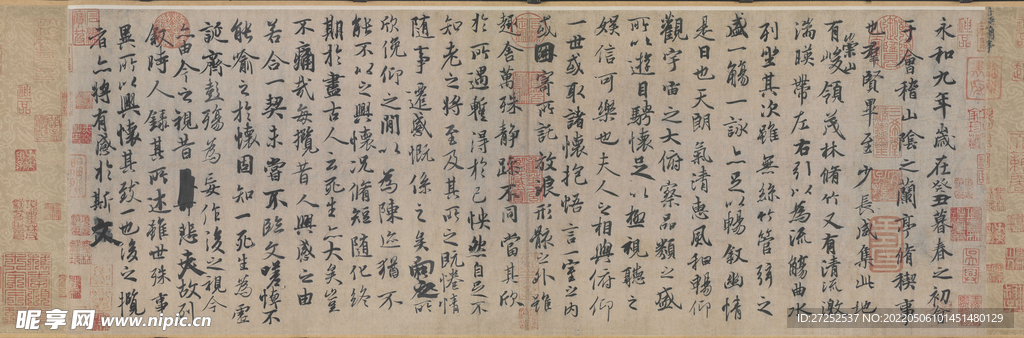 永和九年歲在癸丑暮春之初會
于會稽山陰之蘭亭脩稧事
也羣賢畢至少長咸集此地
有崇山峻領茂林脩竹又有清流激
湍暎帶左右引以為流觴曲水
列坐其次雖無絲竹管弦之
盛一觴一詠亦足以暢敘幽情
是日也天朗氣清惠風和暢仰
觀宇宙之大俯察品類之盛
所以遊目騁懷足以極視聽之
娛信可樂也夫人之相與俯仰
一世或取諸懷抱悟言一室之內
或因寄所託放浪形骸之外雖
趣舍萬殊靜躁不同當其欣
於所遇暫得於己怏然自足不
知老之將至及其所之既惓情
隨事遷感慨係之矣向之所
欣俛仰之閒以為陳迹猶不
能不以之興懷況脩短隨化終
期於盡古人云死生亦大矣豈
不痛哉每攬昔人興感之由
若合一契未嘗不臨文嗟悼不
能喻之於懷固知一死生為虛
誕齊彭殤為妄作後之視今
亦由今之視昔悲夫故列
敘時人錄其所述雖世殊事
異所以興懷其致一也後之攬
者亦將有感於斯文
昵享网 www.nipic.cn
ID:27252537 NO:20220506101451480129